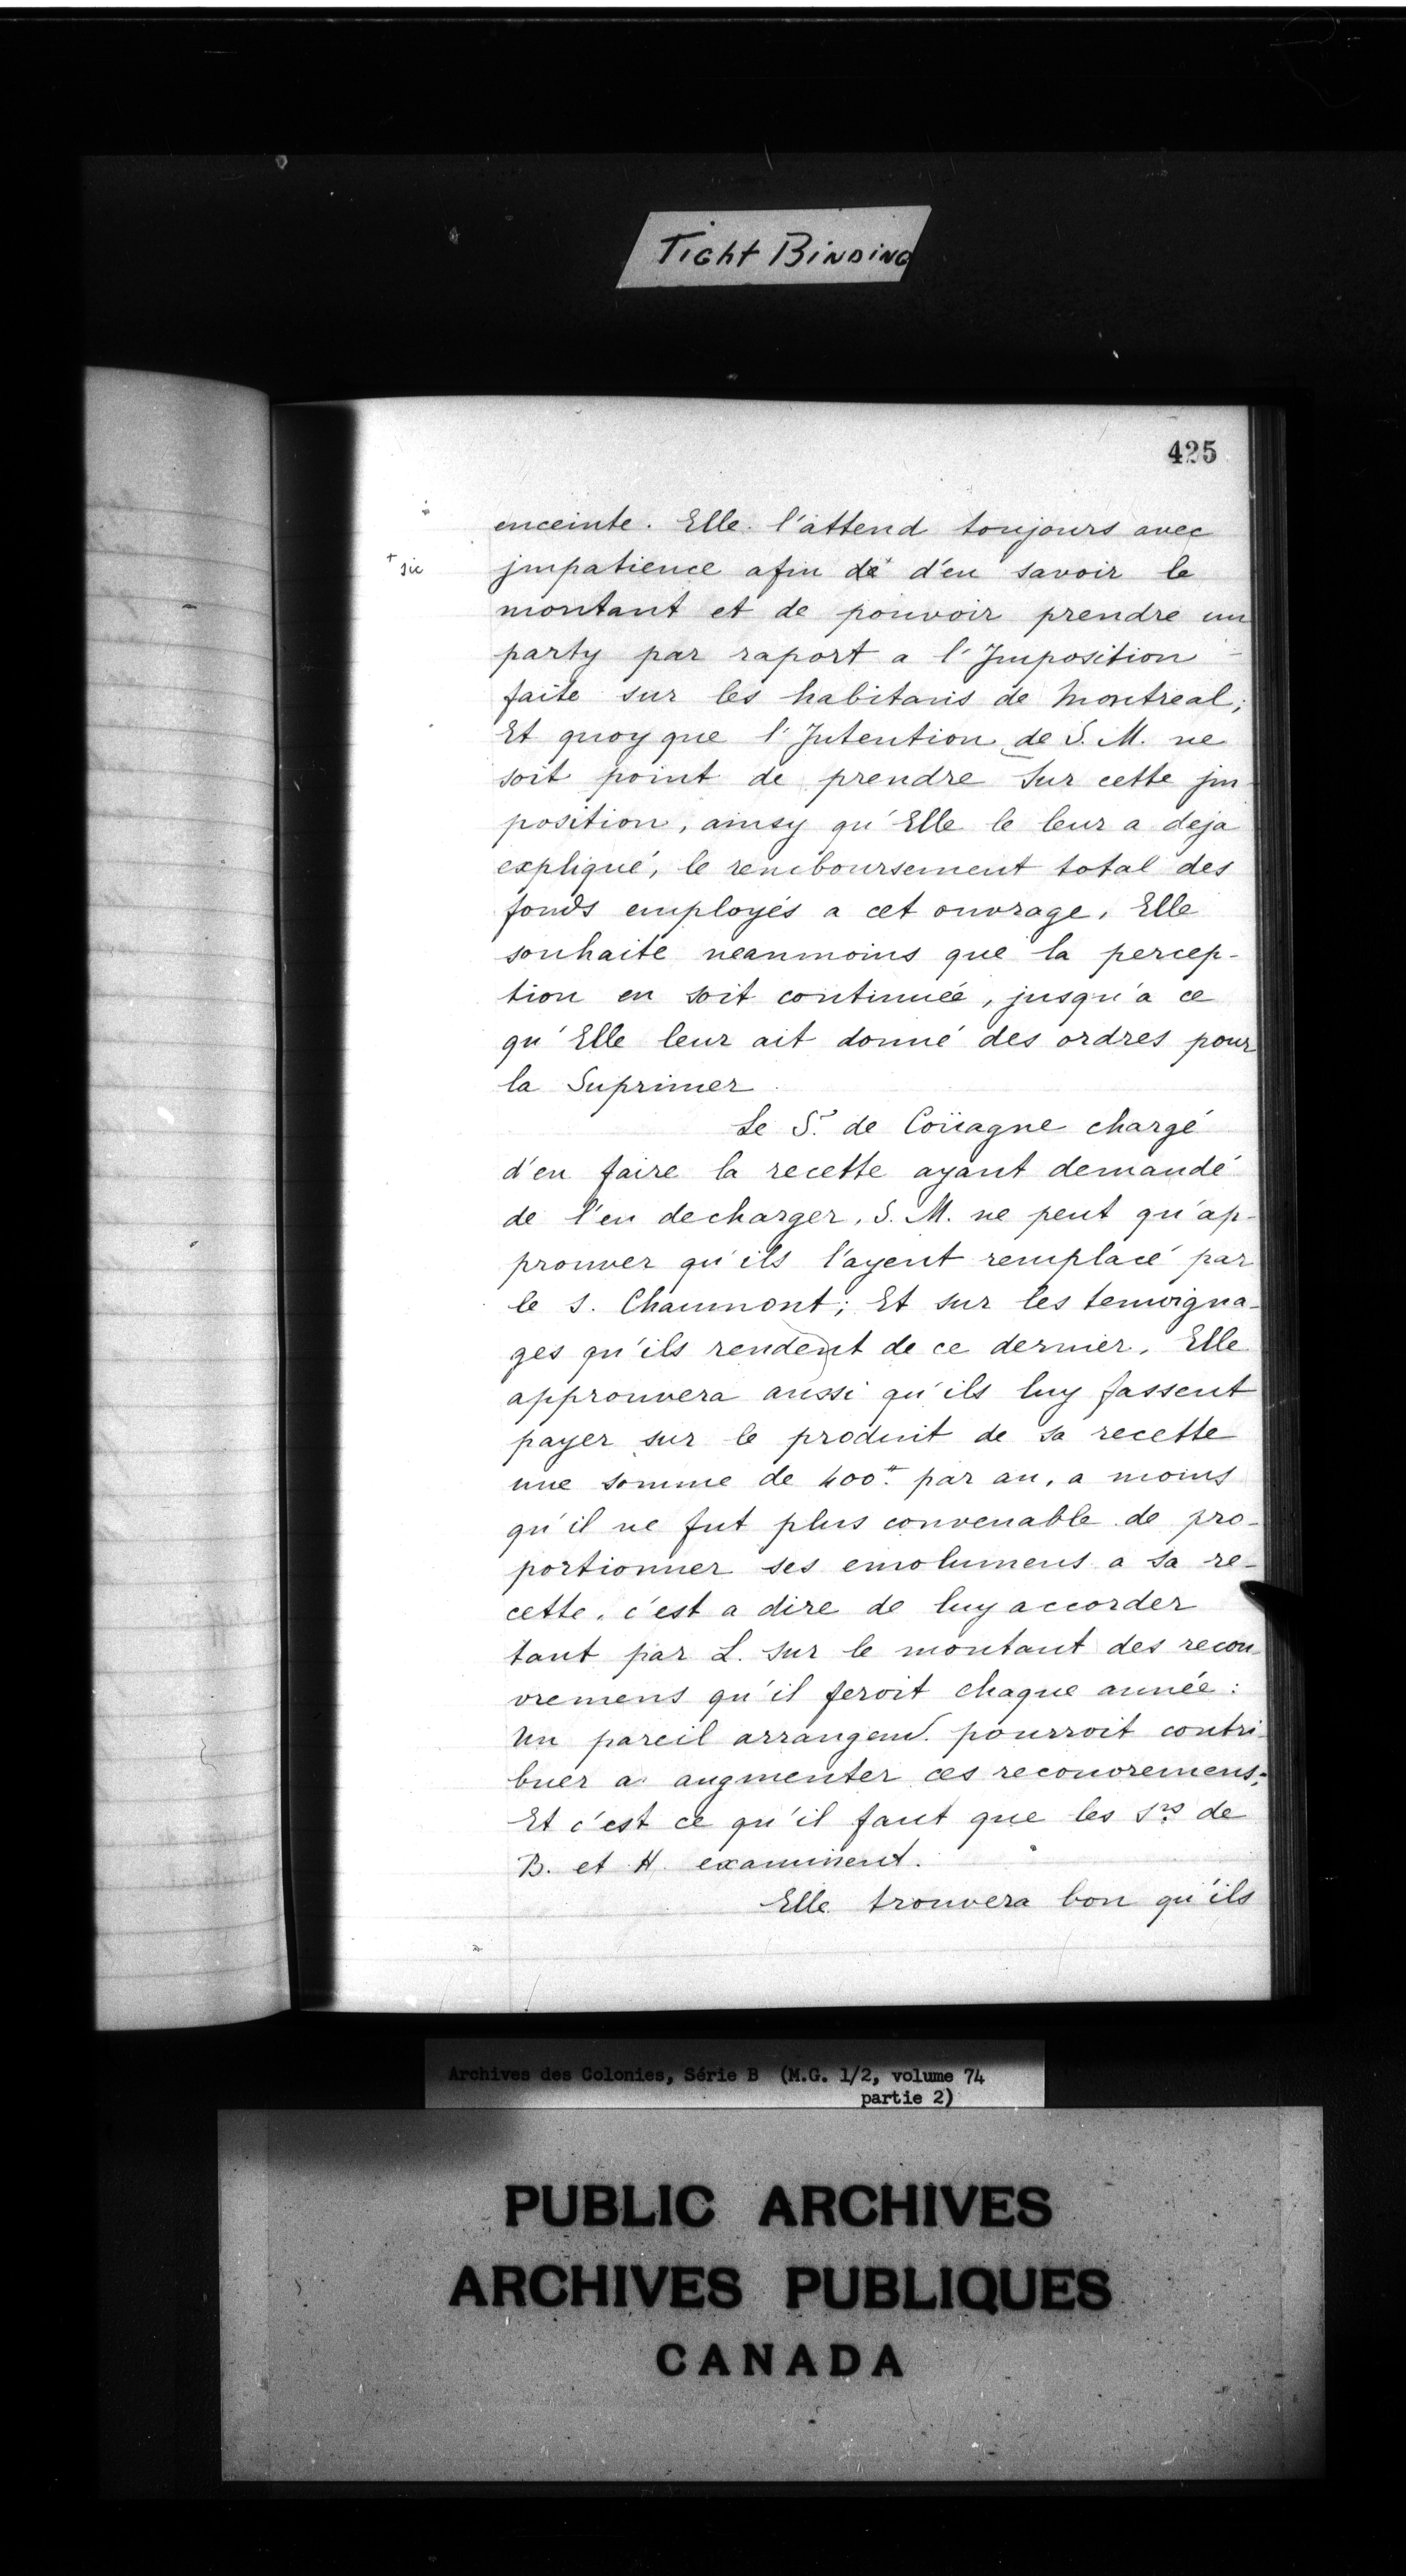 Tight Binding
425
enceinte. Elle l'attend toujours avec
+ sic
jmpatience afin de+ d'en savoir le
montant et de pouvoir prendre un
party par raport a l'Imposition
faite sur les habitans de Montreal;
Et quoy que l'Intention de S. M. ne
soit point de prendre sur cette jm-
position, ainsy qu'Elle le leur a deja
expliqué, le remboursement total des
fonds employés a cet ouvrage, Elle
souhaite neanmoins que la percep-
tion en soit continuée, jusqu'a ce
qu'Elle leur ait donné des ordres pour
la Suprimer
Le Sr. de Coüagne chargé
d'en faire la recette ayant demandé
de l'en decharger, S. M. ne peut qu'ap-
prouver qu'ils l'ayent remplacé par
le s. Chaumont; Et sur les temoigna-
ges qu'ils rendent de ce dernier, Elle
approuvera aussi qu'ils luy fassent
payer sur le produit de sa recette
une somme de 400# par an, a moins
qu'il ne fut plus convenable de pro-
portionner ses emolumens a sa re-
cette, c'est a dire de luy accorder
tant par L. sur le montant des recou-
vremens qu'il feroit chaque année:
Un pareil arrangemt. pourroit contri-
buer a augmenter ces recouvremens;
Et c'est ce qu'il faut que les Srs. de
B. et H. examinent.
Elle trouvera bon qu'ils
Archives des Colonies, Série B (M.G. 1/2, volume 74
partie 2)
PUBLIC ARCHIVES
ARCHIVES PUBLIQUES
CANADA